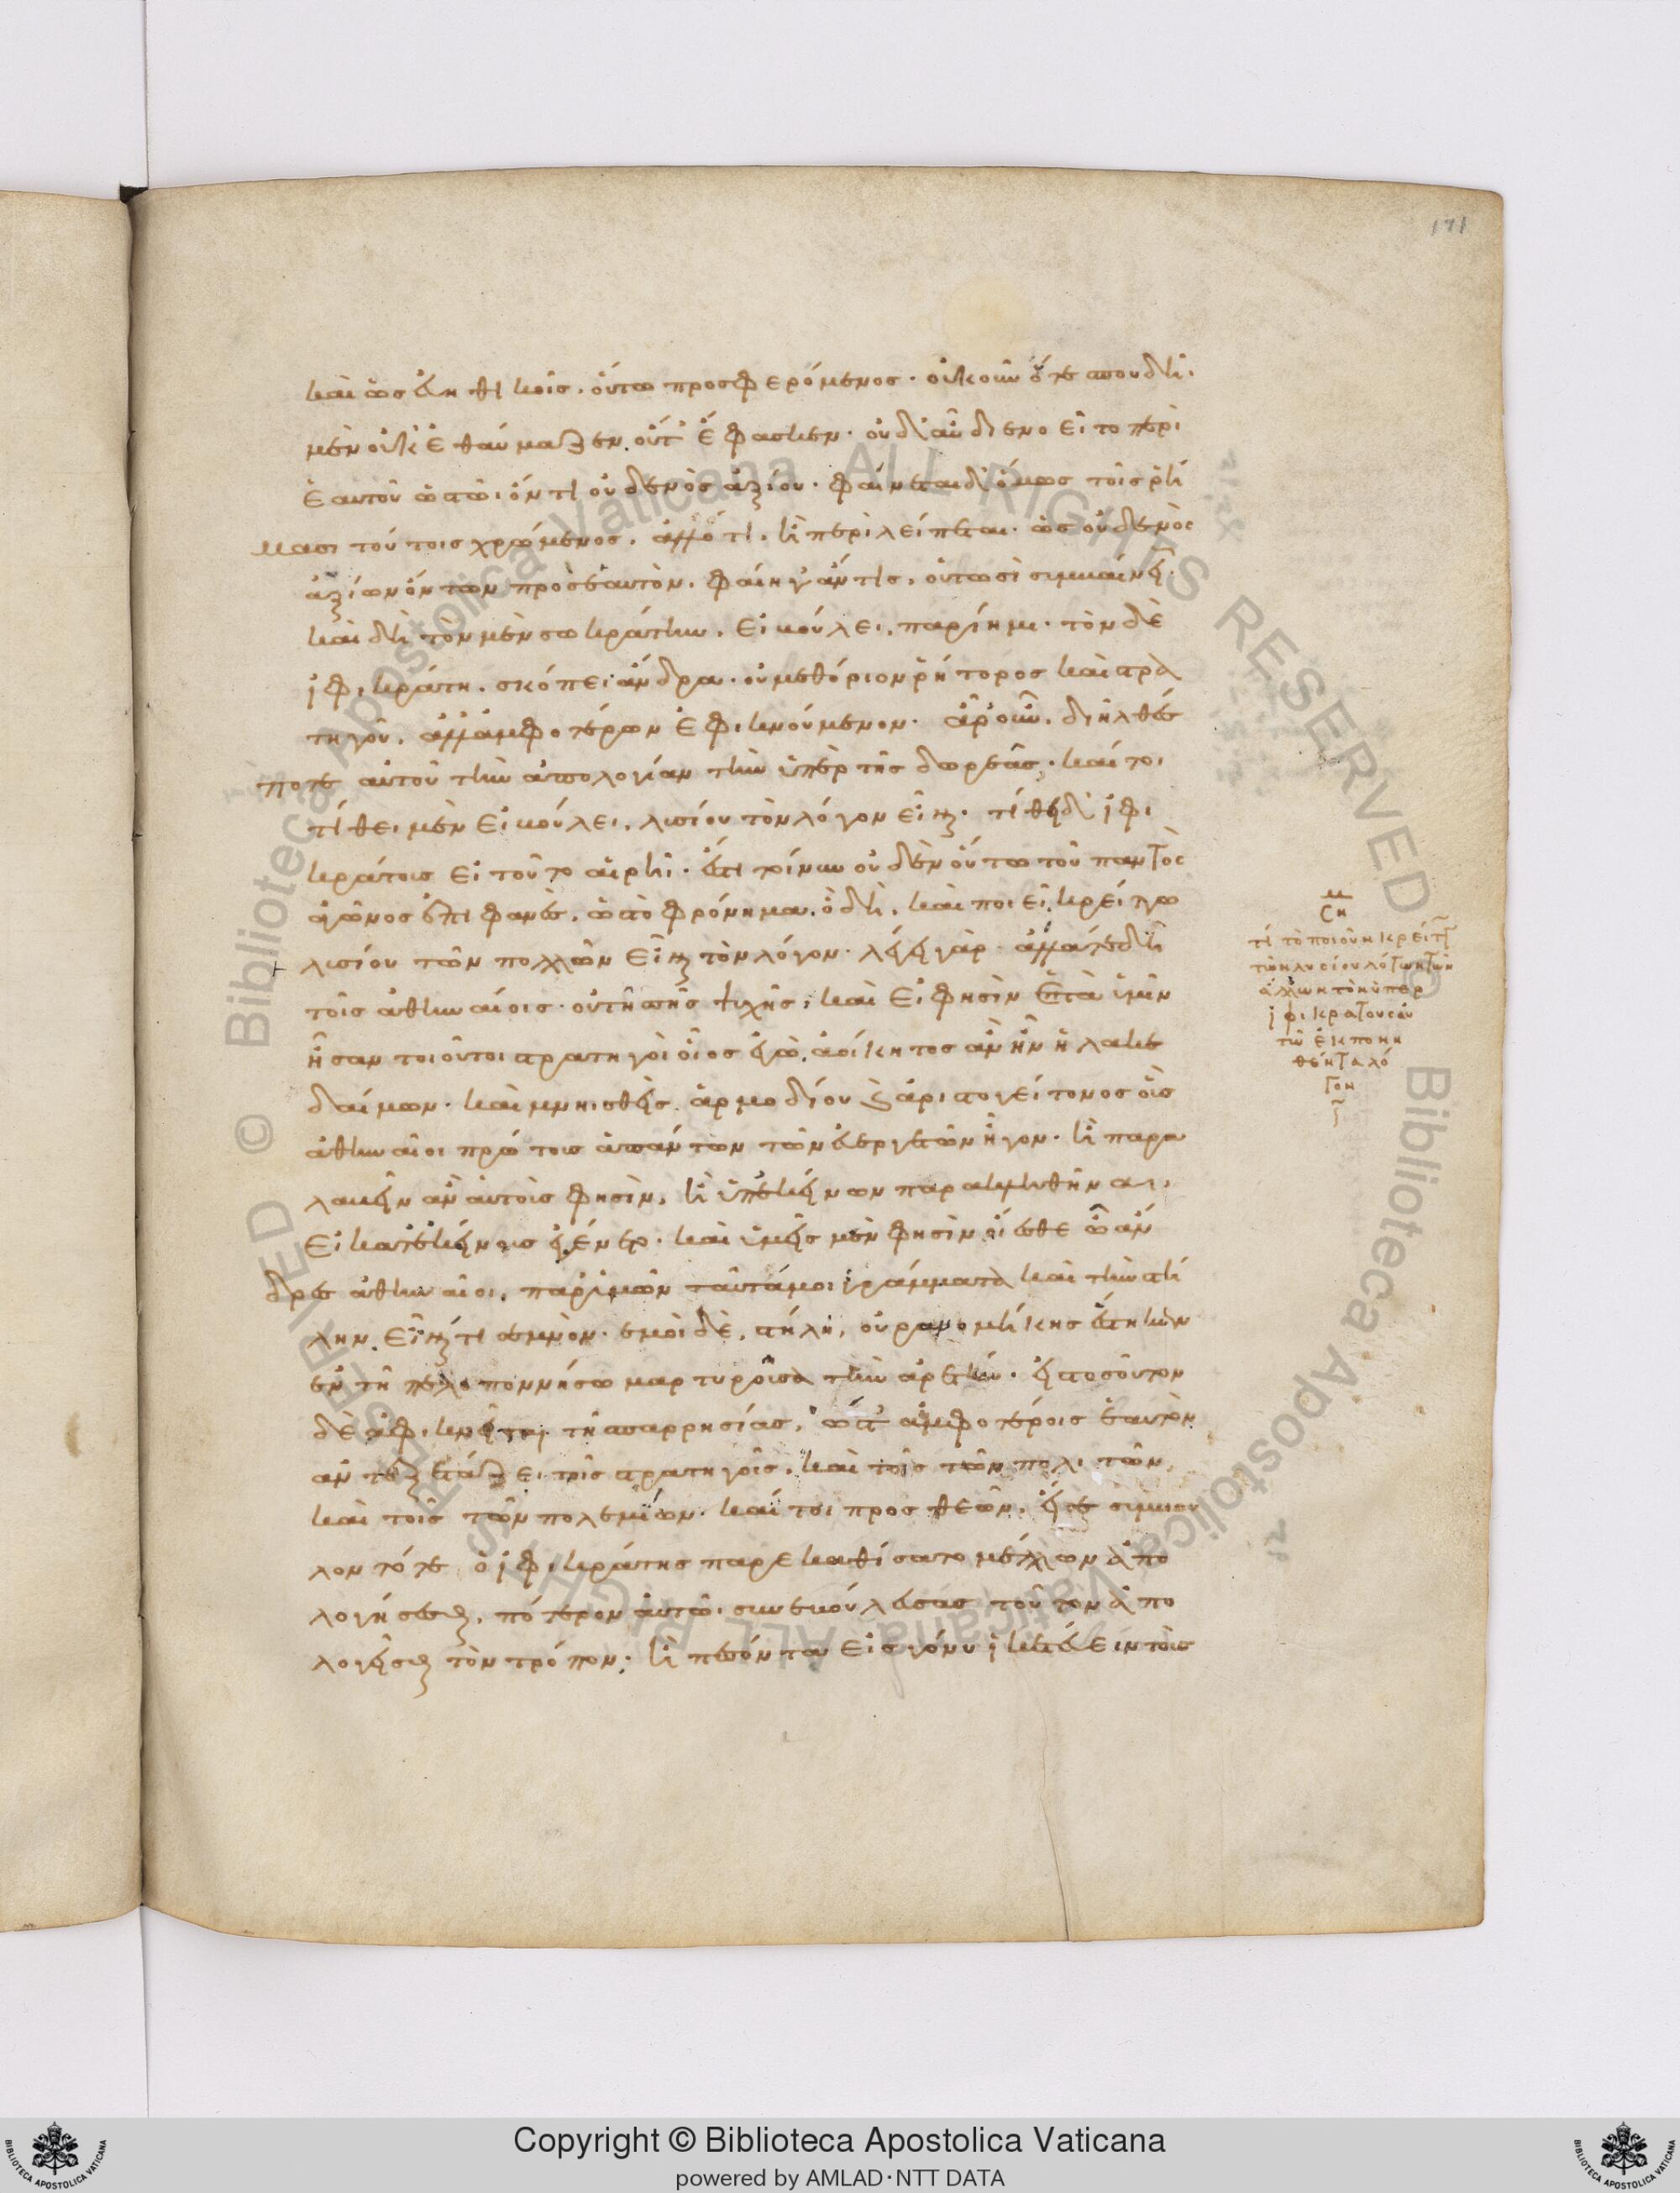 171
καὶ ὡς ἐνηβικοῖς. οὕτω προσφερόμενος. οὐκοῦν ὅτε σπουδῆι.
μὲν οὐκ ἐθαύμαζεν. οὔτ' ἔφασκεν. οὐδ' αὖ διενοεῖτο περὶ
ἑαυτοῦ ὡς τῶι ὄντι οὐδενὸς ἀξίου. φαίνεται δ' ὅμως τοῖς ῥή
μασι τούτοις χρώμενος. ἀλλ' ὅτι. ἢ περιλείπεται. ὡς οὐδενὸς
ἀξίων ὄντων πρὸς ἑαυτὸν. φαίη γ' ἄν τις. οὑτωσὶ συμβαίνει.
καὶ δὴ τὸν μὲν σωκράτην. εἰ βούλει. παρίημι. τὸν δὲ
ἰφικράτη. σκόπει ἄνδρα. οὐ μεθόριον ῥήτορος καὶ στρα
τηγοῦ. ἀλλ' ἀμφοτέρων ἐφικνούμενον. ἆρ' οὖν. διῆλθές
ποτε αὐτοῦ τὴν ἀπολογίαν τὴν ὑπὲρ τῆς δωρεᾶς. καίτοι
τίθει μὲν εἰ βούλει. λυσίου τὸν λόγον εἶναι. τίθει δ' ἰφι
κράτους εἰ τοῦτο αἱρῆι. ἔστι τοίνυν οὐδὲν οὕτω τοῦ παντὸς
ἀγῶνος ἐπιφανὲς. ὡς τὸ φρόνημα. ὃ δὴ. καὶ ποιεῖ κρείττω
λυσίου τῶν πολλῶν εἶναι τὸν λόγον. λέγει γὰρ ἄλλα τε δὴ
τοῖς ἀθηναίοις. οὑτησὶ τῆς ψυχῆς. καὶ εἰ φησὶν ἑπτὰ ὑμῖν
ἦσαν τοιοῦτοι στρατηγοὶ οἷος ἐγὼ, ἀοίκητος ἂν ἦν ἡ λακε
δαίμων. καὶ μνησθεὶς ἁρμοδίου καὶ ἀριστογείτονος οὓς
ἀθηναῖοι πρώτους ἁπάντων τῶν εὐεργετῶν ἦγον. ἢ παρα
λαβεῖν ἂν αὐτοὺς φησὶν, ἢ ὑπ' ἐκείνων παραληφθῆναι,
εἰ κατ' ἐκείνους ἐγένετο. καὶ ὑμεῖς μὲν φησὶν οἴεσθε ὦ ἄν
δρες ἀθηναῖοι. παρ' ὑμῶν ταυτά μοι γράμματα καὶ τὴν στή
λην εἶναί τι σεμνὸν. ἐμοὶ δὲ, στήλη, οὐρανομήκης ἕστηκεν
ἐν τῆ πελοποννήσω μαρτυροῦσα τὴν ἀρετήν. εἰς τοσοῦτον
δὲ ἀφικνεῖται τῆς παρρησίας, ὥστ' ἀμφοτέροις ἑαυτὸν
ἀντεξετάζει τοῖς στρατηγοῖς. καὶ τοῖς τῶν πολιτῶν,
καὶ τοῖς τῶν πολεμίων. καίτοι προς θεῶν. εἴγε σύμβου
λον τότε ὁ ἰφικράτης παρεκαθίσατο μέλλων ἀπο
λογήσεσθαι, πότερον αὐτῶι συνεβούλευσας τοῦτον ἀπο
λογεῖσθαι τὸν τρόπον. ἢ πεσόντα εἰς γόνυ ἱκετεύειν τοὺς
ση
τί τὸ ποιοῦν κρεῖττω
τῶν λυσίου λόγων τῶν
ἄλλων τὸν ὑπὲρ
ἰφικράτους αὐ
τῶ ἐκπονη
θέντα λό
γον